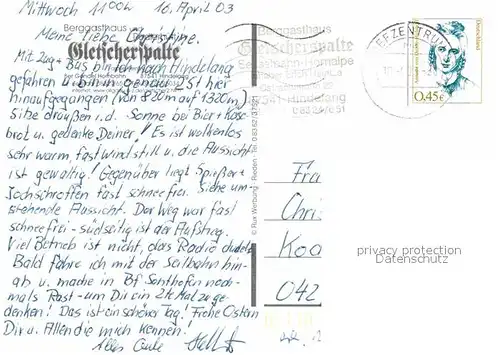 Mittwoch 11 00h 16. April 03
Meine liebe Christine.
Berggasthaus
Gletscherspalte
Mit Zug + Bus bin ich nach Hindelang
gefahren u. bin genau 2 St hier
hinaufgegangen (von 820m auf 1320m)
Sitze draußen i.d. Sonne bei Bier + Käse-
brot u. gedenke Deiner! Es ist wolkenlos
sehr warm, fast windstill u. die Aussicht
ist gewaltig! Gegenüber liegt Spießer +
Jochschrotten fast schneefrei. Siehe um-
stehende Aussicht. Der Weg war fast
schneefrei - südseitig ist der Aufstieg.
Viel Betrieb ist nicht, das Radio dudelt
Bald fahre ich mit der Seilbahn hin-
ab u. mache in Bf Sonthofen noch-
mals Rast - um Dir ein 2te Mal zu ge-
denken! Das ist ein schöner Tag! Frohe Ostern
Dir u. Allen die mich kennen!
Alles Gute
© Rux Werbung · Rieden · Tel. 0 83 62/3 73 21
Berggasthaus
Gletscherspalte
87541 Hindelang
EFZENTRUM
Deutschland
0,45€
Fra
Chri
Koa
042
privacy protection
Datenschutz